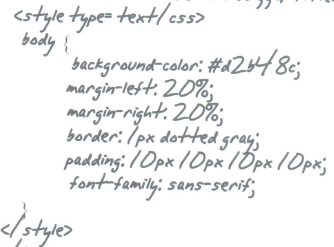 <style type= text/css>
body {
background-color: #d2b48c;
margin-left: 20%;
margin-right: 20%;
border: 1px dotted gray;
padding: 10px 10px 10px 10px;
font-family: sans-serif;
}
</style>